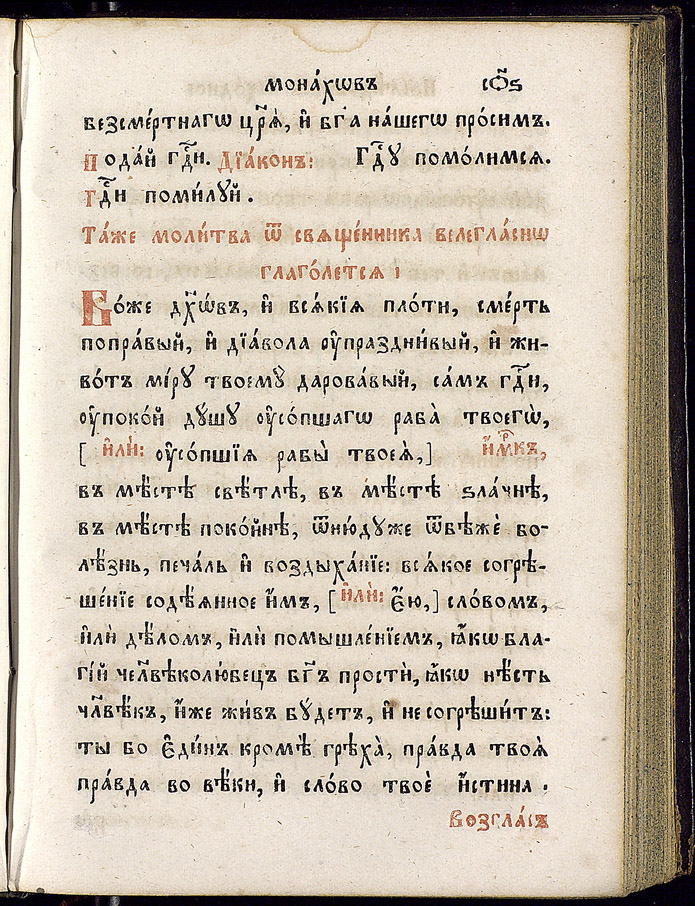 мона́хѡвъ    сѻ҃ѕ
безсме́ртнагѡ цр҃ѧ̀, и҆ бг҃а на́шегѡ про́симъ.
Пода́й гдⷭ҇и. Дїа́конъ: Гдⷭ҇ꙋ помо́лимсѧ.
Гдⷭ҇и поми́лꙋй.
Та́же моли́тва ѿ свѧще́нника велегла́снѡ
глаго́летсѧ :
Бо́же дꙋхѡ́въ, и҆ всѧ́кїѧ пло́ти, сме́рть
попра́вый, и҆ дїа́вола ᲂу҆праздни́вый, и҆ жи-
во́тъ мі́рꙋ твоемꙋ̀ дарова́вый, са́мъ гдⷭ҇и,
ᲂу҆поко́й дꙋ́шꙋ ᲂу҆со́пшагѡ раба̀ твоегѡ̀,
[ и҆лѝ: ᲂу҆со́пшїѧ рабы̀ твоеѧ̀,] и҆́мⷬ҇къ,
въ мѣ́стѣ свѣ́тлѣ, въ мѣ́стѣ ѕла́чнѣ,
въ мѣ́стѣ поко́йнѣ, ѿню́дꙋже ѿбѣжѐ бо-
лѣ́знь, печа́ль и҆ воздыха́нїе: всѧ́кое согрѣ-
ше́нїе содѣ́ѧнное и҆́мъ, [и҆лѝ: є҆́ю,] сло́вомъ,
и҆лѝ дѣ́ломъ, и҆лѝ помышле́нїемъ, ꙗ҆́кѡ бла-
гі́й чл҃вѣколю́бецъ бг҃ъ простѝ, ꙗ҆́кѡ нѣ́сть
чл҃вѣ́къ, и҆́же жи́въ бꙋ́детъ, и҆ не согрѣши́тъ:
ты бо є҆ди́нъ кромѣ̀ грѣха̀, пра́вда твоѧ̀
пра́вда во вѣ́ки, и҆ сло́во твоѐ и҆́стина.
Возгла́съ